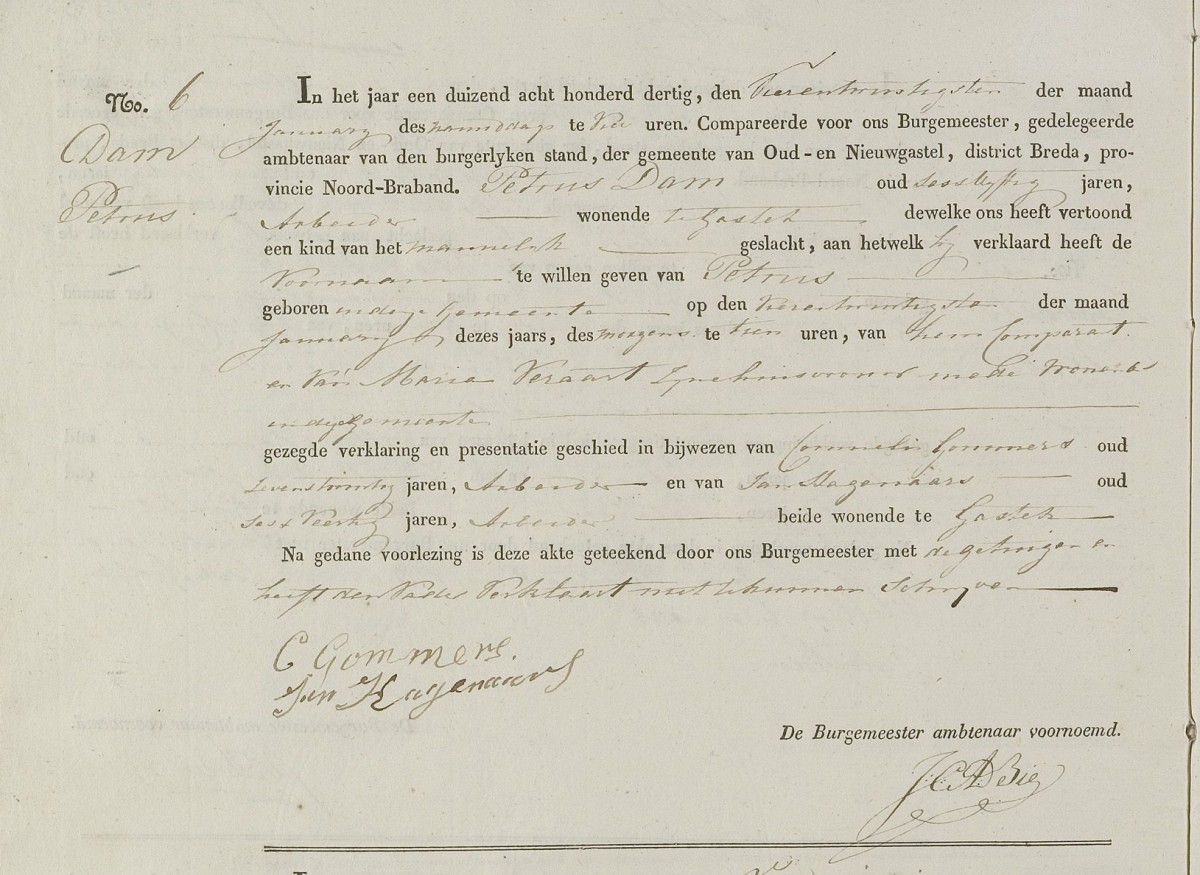 No. 6
Dam
Petrus
In het jaar een duizend acht honderd dertig, den Vierentwintigsten der maand
January des namiddags te vier uren. Compareerde voor ons Burgemeester, gedelegeerde
ambtenaar van den burgerlyken stand, der gemeente van Oud-en Nieuwgastel, district Breda, pro-
vincie Noord-Braband. Petrus Dam oud jaren,
Arbeider wonende te Gastel dewelke ons heeft vertoond
een kind van het mannelyk geslacht, aan hetwelk hy verklaard heeft de
Voornaam te willen geven van Petrus
geboren in deze Gemeente op den vierentwintigsten der maand
January dezes jaars, des morgens te tien uren, van hem Comparat
en van Maria Veraart zyne huisvrouw mede wonende
in deze Gemeente
gezegde verklaring en presentatie geschied in bijwezen van Cornnelis Gommers oud
jaren, Arbeider en van Jan Hagenaars oud
ses & Veertig jaren, Arbeider beide wonende te Gastel
Na gedane voorlezing is deze akte geteekend door ons Burgemeester met de getuigen en
heeft den Vader Verklaart niet te kunnen Schryven
C Gommers.
Jan Hagenaars
De Burgemeester ambtenaar voornoemd.